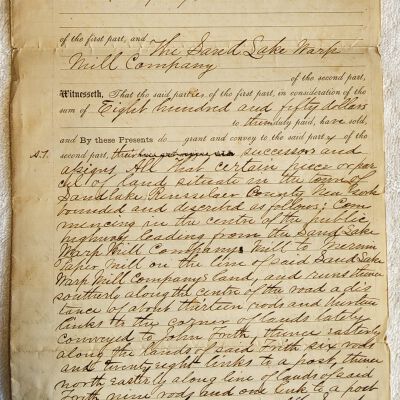 of the first part, and The Sand Lake Warp
Mill Company
of the second part,
Witnesseth, That the said parties of the first part, in consideration of the
sum of Eight hundred and fifty dollars
to them duly paid, have sold,
and By these Presents do grant and convey to the said party of the
second part, successors and
assigns All That certain piece or par
cel of land situate in the town of
Sandlake Rensselaer County New York
bounded and described as follows: Com
mencing in the centre of the public
highway leading from the Sand Lake
Warp Mill Companys Mill to
Paper Mill on the line of said Sand Lake
Warp Mill Companys land, and runs thence
southerly along the centre of the road a dis
tance of about thirteen rods and
links to the corner of lands lately
conveyed to John Forth, thence easterly
along the lands of said Forth six rods
and twenty eight links to a post, thence
north easterly along line of lands of said
Forth nine rods and one link to a post